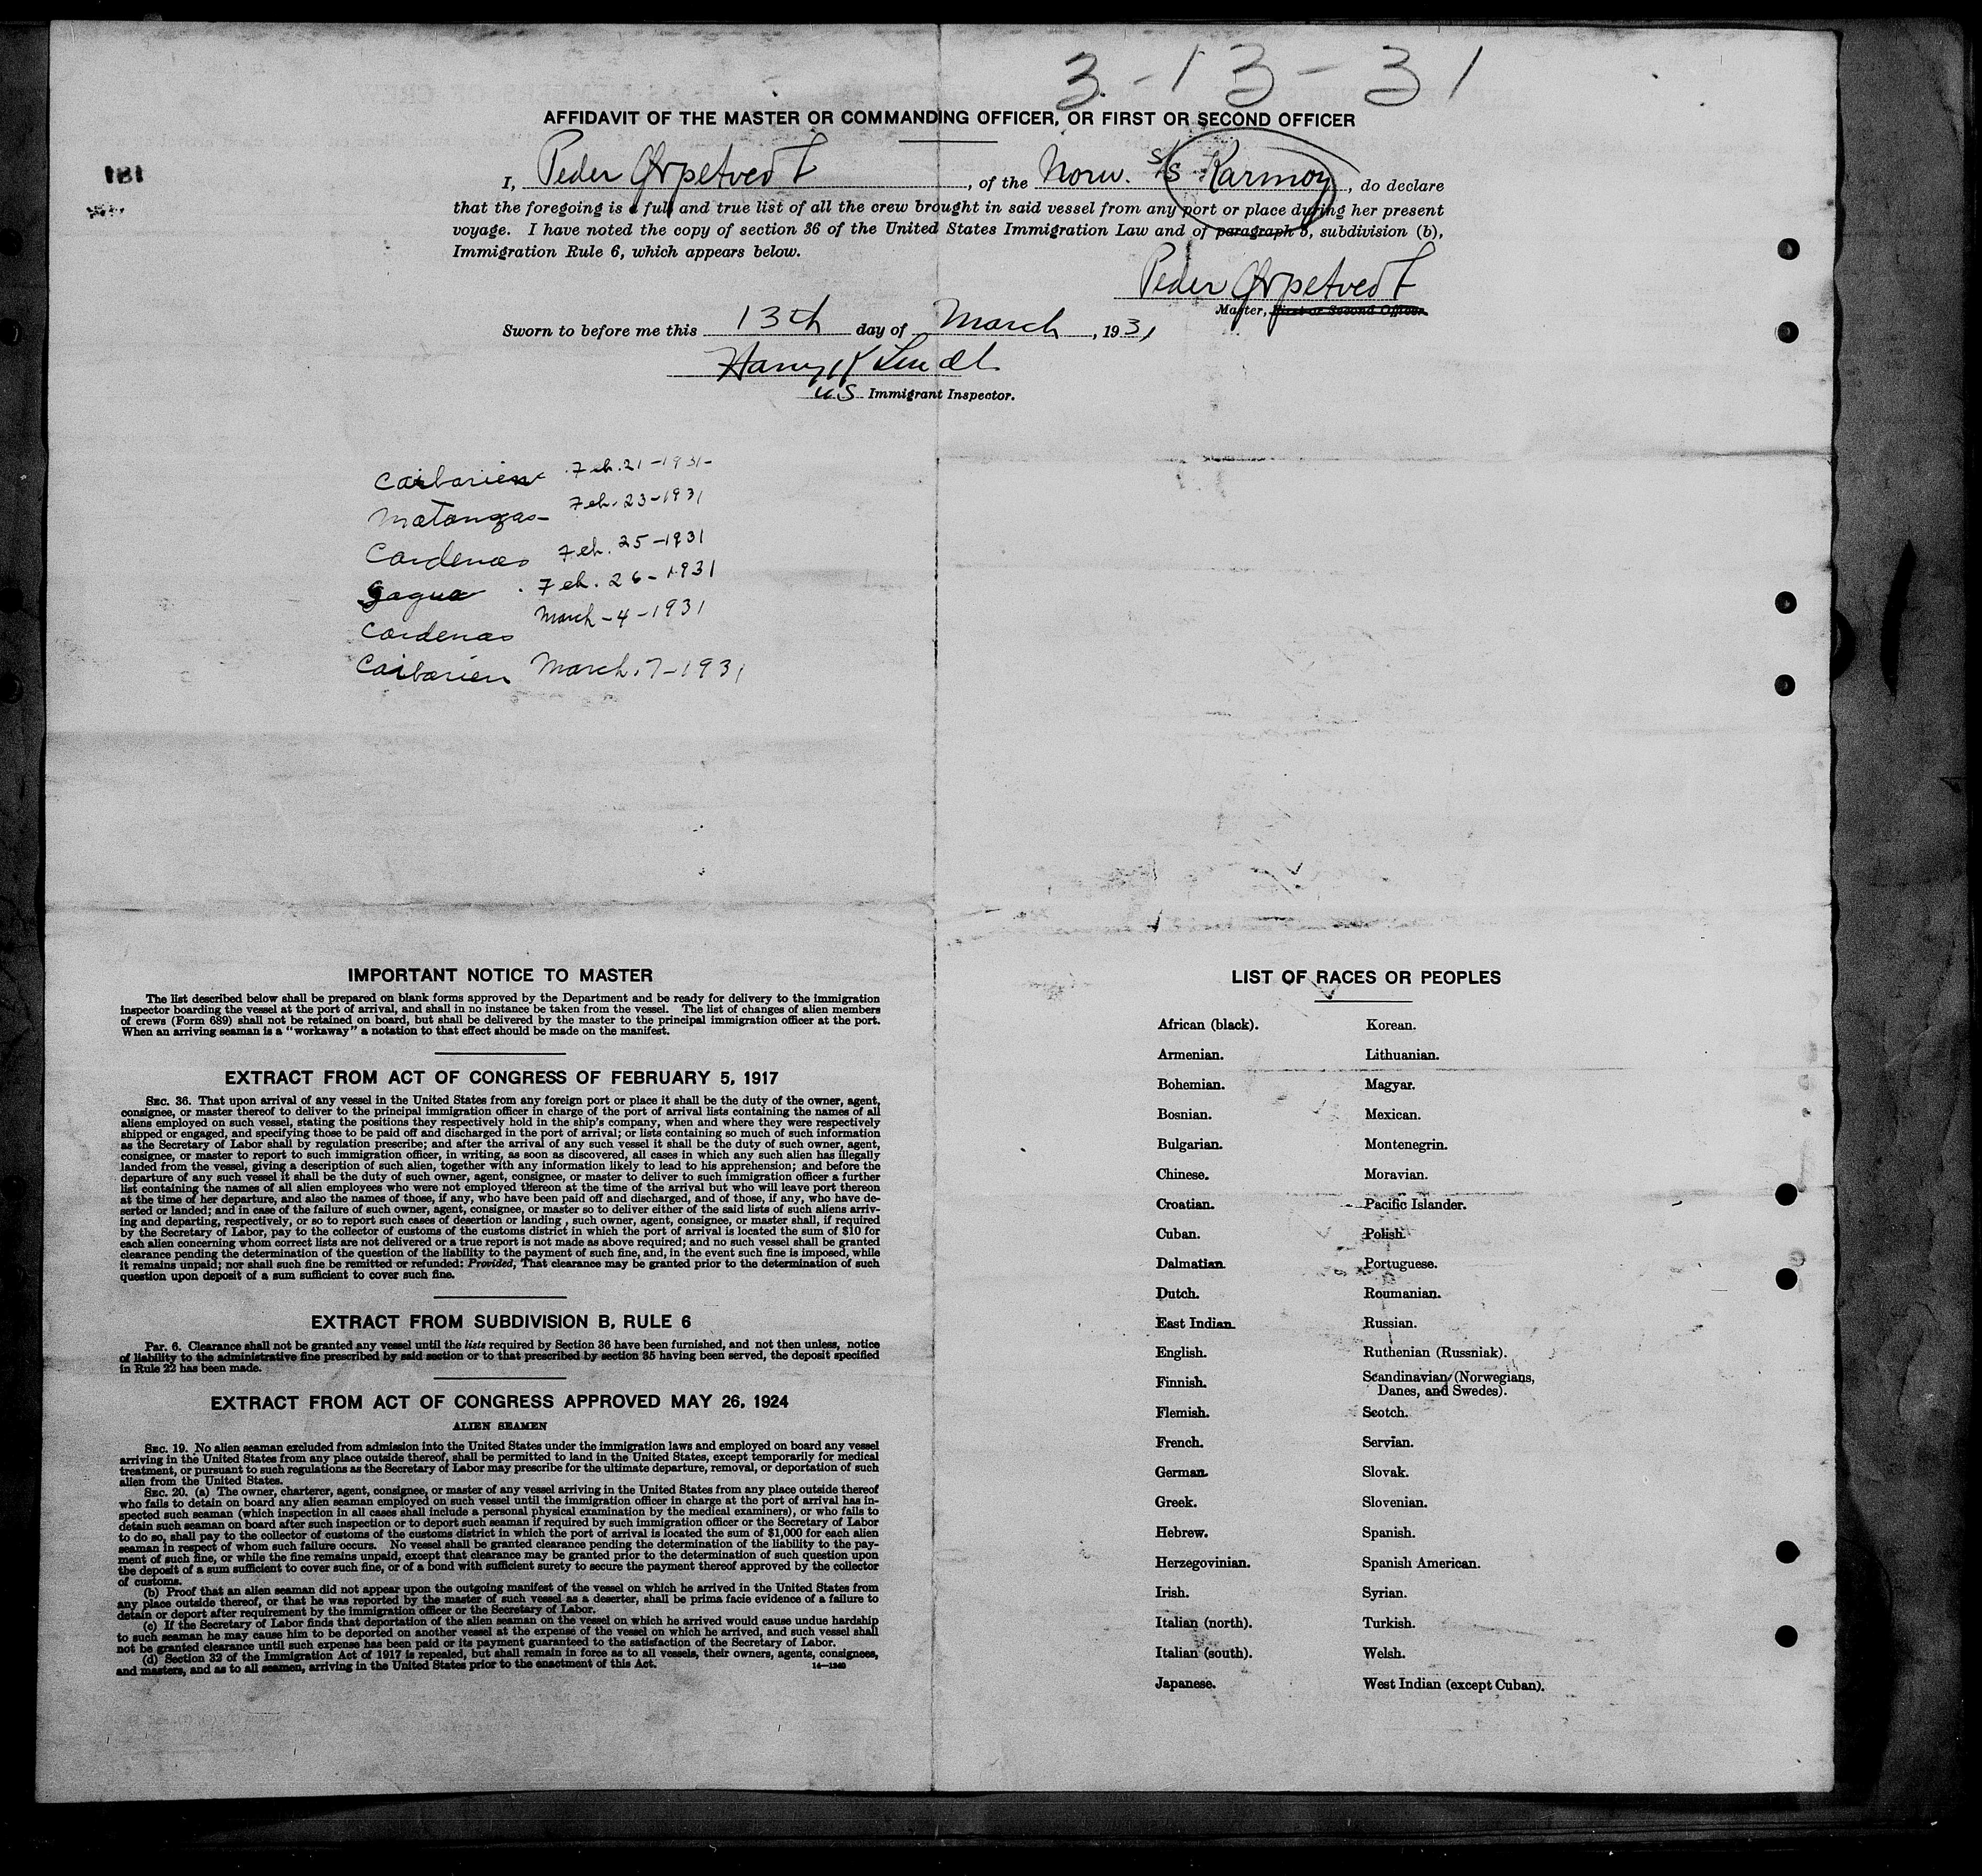 3-13-31
AFFIDAVIT OF THE MASTER OR COMMANDING OFFICER, OR FIRST OR SECOND OFFICER
181
I, Peder , of the Norw. S/S Karmoy, do declare
that the foregoing is a full and true list of all the crew brought in said vessel from any port or place during her present
voyage. I have noted the copy of section 36 of the United States Immigration Law and of paragraph 6, subdivision (b),
Immigration Rule 6, which appears below.
Peder
Master, First or Second Officer.
Sworn to before me this 13th day of March, 1931
Harry K
U.S. Immigrant Inspector.
Caibarien Feb. 21-1931-
Matanzas- Feb. 23-1931
Cardenas Feb. 25-1931
Sagua. Feb. 26-1931
Cardenas March-4-1931
Caibarien March.7-1931
IMPORTANT NOTICE TO MASTER
The list described below shall be prepared on blank forms approved by the Department and be ready for delivery to the immigration
inspector boarding the vessel at the port of arrival, and shall in no instance be taken from the vessel. The list of changes of alien members
of crews (Form 689) shall not be retained on board, but shall be delivered by the master to the principal immigration officer at the port.
When an arriving seaman is a "workaway" a notation to that effect should be made on the manifest.
EXTRACT FROM ACT OF CONGRESS OF FEBRUARY 5, 1917
SEC. 36. That upon arrival of any vessel in the United States from any foreign port or place it shall be the duty of the owner, agent,
consignee, or master thereof to deliver to the principal immigration officer in charge of the port of arrival lists containing the names of all
aliens employed on such vessel, stating the positions they respectively hold in the ship's company, when and where they were respectively
shipped or engaged, and specifying those to be paid off and discharged in the port of arrival; or lists containing so much of such information
as the Secretary of Labor shall by regulation prescribe; and after the arrival of any such vessel it shall be the duty of such owner, agent,
consignee, or master to report to such immigration officer, in writing, as soon as discovered, all cases in which any such alien has illegally
landed from the vessel, giving a description of such alien, together with any information likely to lead to his apprehension; and before the
departure of any such vessel it shall be the duty of such owner, agent, consignee, or master to deliver to such immigration officer a further
list containing the names of all alien employees who were not employed thereon at the time of the arrival but who will leave port thereon
at the time of her departure, and also the names of those, if any, who have been paid off and discharged, and of those, if any, who have de-
serted or landed; and in case of the failure of such owner, agent, consignee, or master so to deliver either of the said lists of such aliens arriv-
ing and departing, respectively, or so to report such cases of desertion or landing, such owner, agent, consignee, or master shall, if required
by the Secretary of Labor, pay to the collector of customs of the customs district in which the port of arrival is located the sum of $10 for
each alien concerning whom correct lists are not delivered or a true report is not made as above required; and no such vessel shall be granted
clearance pending the determination of the question of the liability to the payment of such fine, and, in the event such fine is imposed, while
it remains unpaid; nor shall such fine be remitted or refunded: Provided, That clearance may be granted prior to the determination of such
question upon deposit of a sum sufficient to cover such fine.
EXTRACT FROM SUBDIVISION B, RULE 6
PAR. 6. Clearance shall not be granted any vessel until the lists required by Section 36 have been furnished, and not then unless, notice
of liability to the administrative fine prescribed by said section or to that prescribed by section 35 having been served, the deposit specified
in Rule 22 has been made.
EXTRACT FROM ACT OF CONGRESS APPROVED MAY 26, 1924
ALIEN SEAMEN
SEC. 19. No alien seaman excluded from admission into the United States under the immigration laws and employed on board any vessel
arriving in the United States from any place outside thereof, shall be permitted to land in the United States, except temporarily for medical
treatment, or pursuant to such regulations as the Secretary of Labor may prescribe for the ultimate departure, removal, or deportation of such
alien from the United States.
SEC. 20. (a) The owner, charterer, agent, consignee, or master of any vessel arriving in the United States from any place outside thereof
who fails to detain on board any alien seaman employed on such vessel until the immigration officer in charge at the port of arrival has in-
spected such seaman (which inspection in all cases shall include a personal physical examination by the medical examiners), or who fails to
detain such seaman on board after such inspection or to deport such seaman if required by such immigration officer or the Secretary of Labor
to do so, shall pay to the collector of customs of the customs district in which the port of arrival is located the sum of $1,000 for each alien
seaman in respect of whom such failure occurs. No vessel shall be granted clearance pending the determination of the liability to the pay-
ment of such fine, or while the fine remains unpaid, except that clearance may be granted prior to the determination of such question upon
the deposit of a sum sufficient to cover such fine, or of a bond with sufficient surety to secure the payment thereof approved by the collector
of customs.
(b) Proof that an alien seaman did not appear upon the outgoing manifest of the vessel on which he arrived in the United States from
any place outside thereof, or that he was reported by the master of such vessel as a deserter, shall be prima facie evidence of a failure to
detain or deport after requirement by the immigration officer or the Secretary of Labor.
(c) If the Secretary of Labor finds that deportation of the alien seaman on the vessel on which he arrived would cause undue hardship
to such seaman he may cause him to be deported on another vessel at the expense of the vessel on which he arrived, and such vessel shall
not be granted clearance until such expense has been paid or its payment guaranteed to the satisfaction of the Secretary of Labor.
(d) Section 32 of the Immigration Act of 1917 is repealed, but shall remain in force as to all vessels, their owners, agents, consignees,
and masters, and as to all seamen, arriving in the United States prior to the enactment of this Act. 14—1240
LIST OF RACES OR PEOPLES
African (black). Korean.
Armenian. Lithuanian.
Bohemian. Magyar.
Bosnian. Mexican.
Bulgarian. Montenegrin.
Chinese. Moravian.
Croatian. Pacific Islander.
Cuban. Polish.
Dalmatian. Portuguese.
Dutch. Roumanian.
East Indian. Russian.
English. Ruthenian (Russniak).
Finnish. Scandinavian (Norwegians,
Danes, and Swedes).
Flemish. Scotch.
French. Servian.
German. Slovak.
Greek. Slovenian.
Hebrew. Spanish.
Herzegovinian. Spanish American.
Irish. Syrian.
Italian (north). Turkish.
Italian (south). Welsh.
Japanese. West Indian (except Cuban).